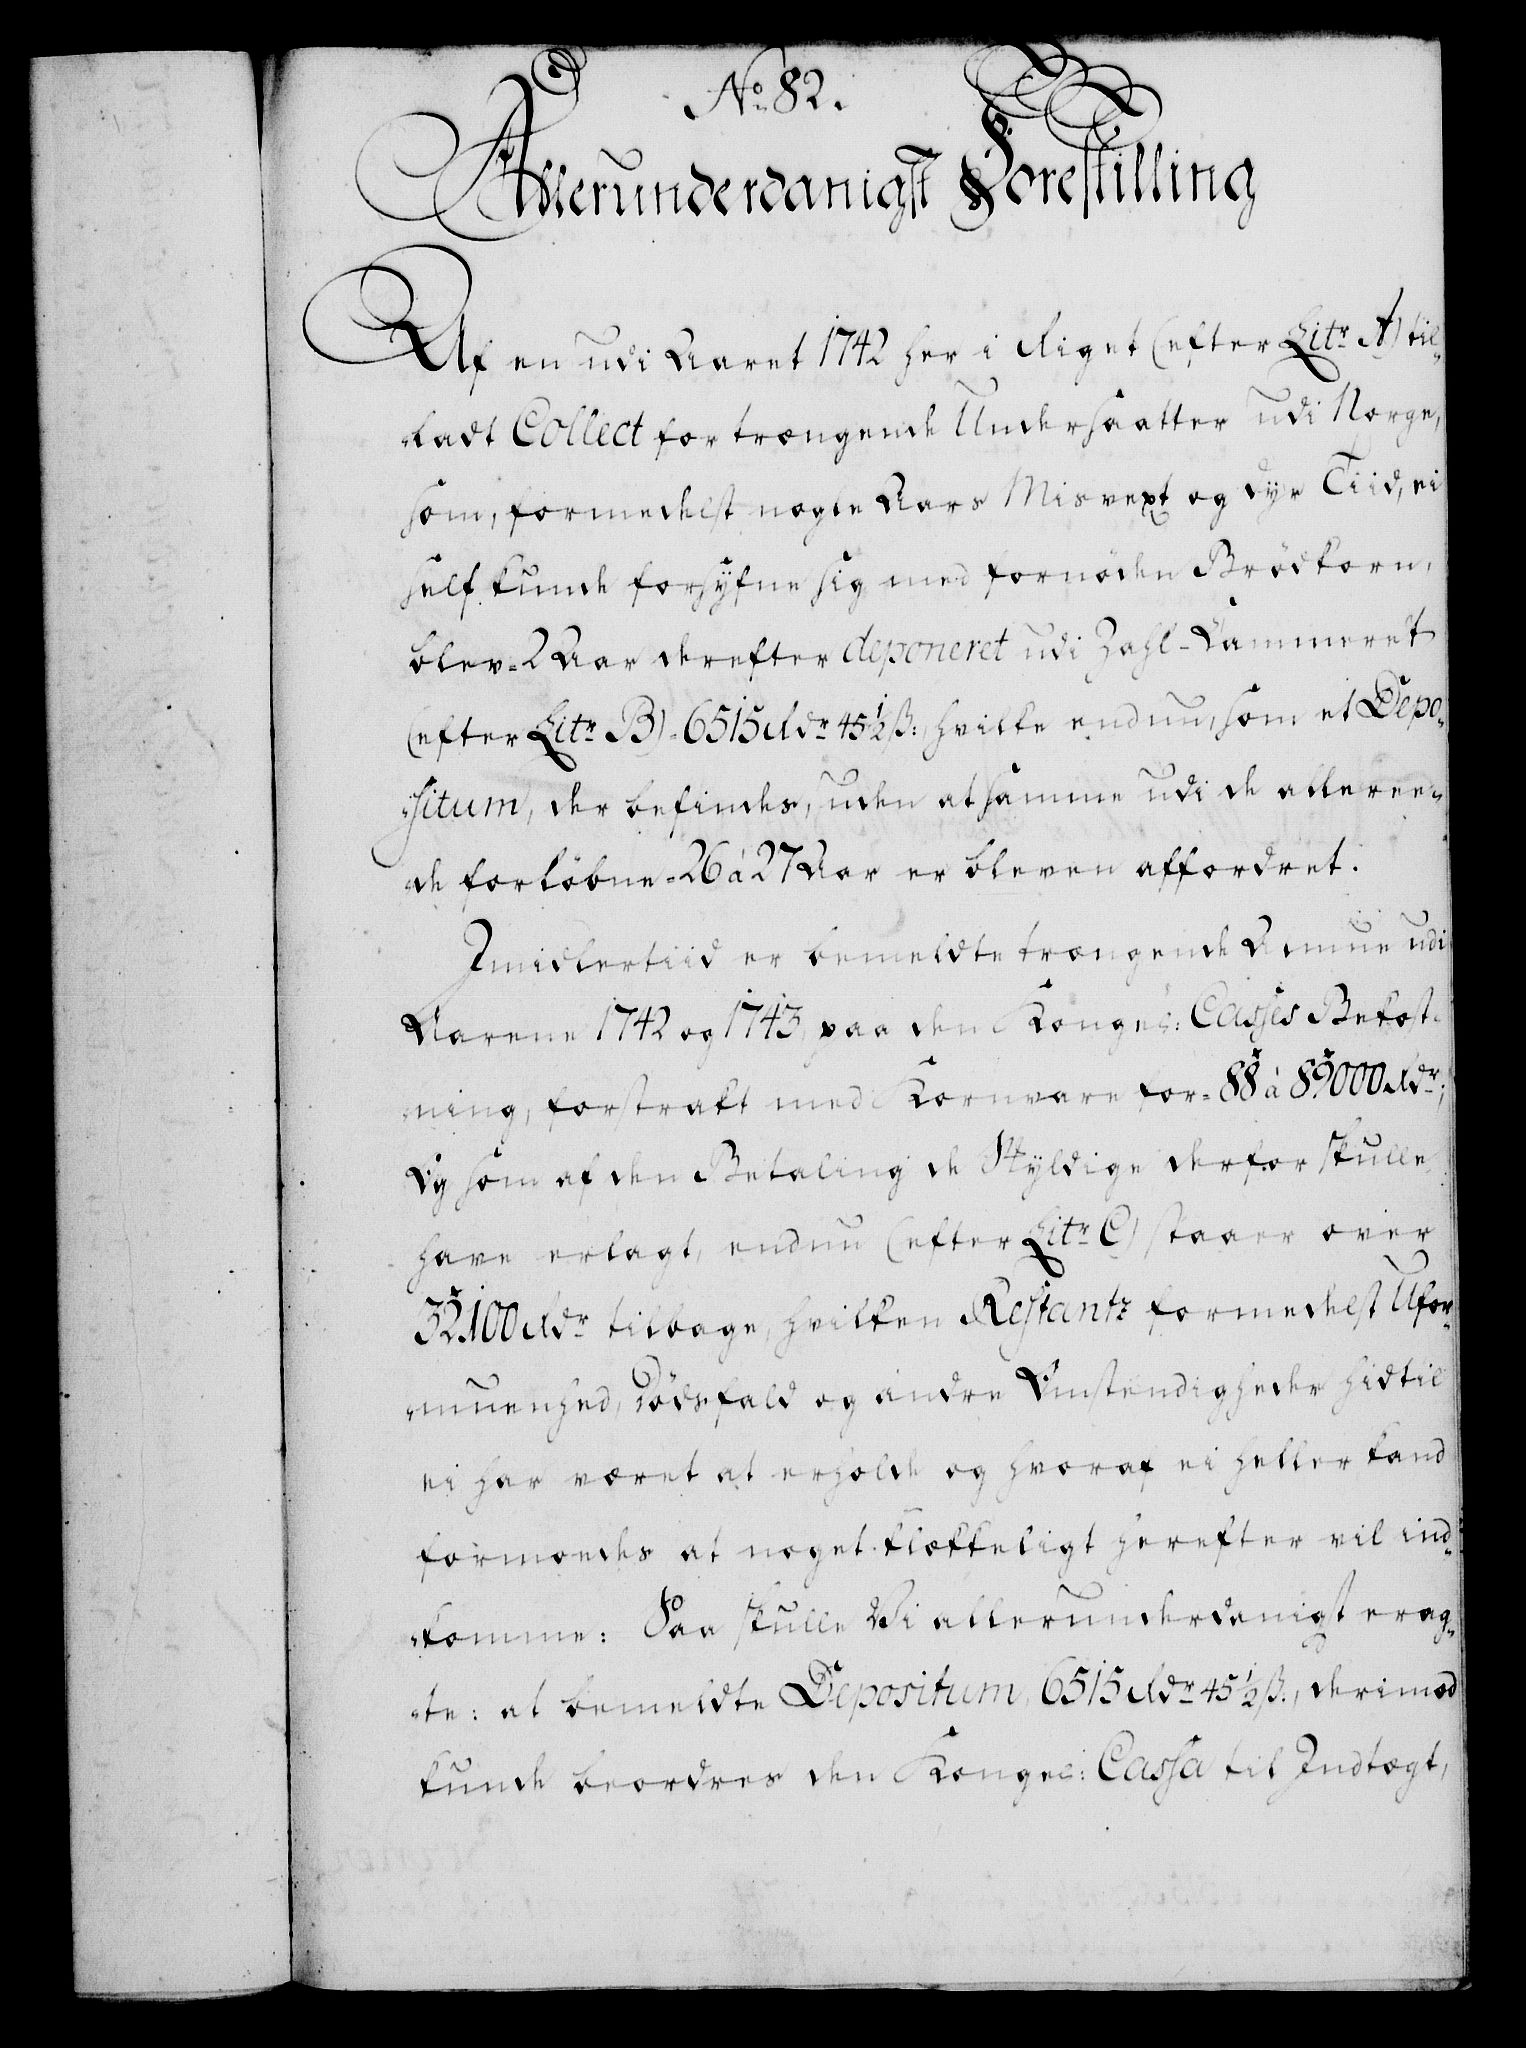 No 82.
Allerunderdanigst Forestilling
Af en udi Aaret 1742 her i Riget (efter Litr A) til-
ladt Collect for trængende Undersaatter udi Norge,
som, formedelst nogle Aars Misvext og dyr Tiid, ei
self kunde forsyfne sig med fornøden Brødkorn,
blev 2 Aar derefter deponeret udi Zahl-Kammeret
(efter Litr B) 6515 Rdr 45½ ß:, hvilke endnu, som et Depo-
situm, der befindes, uden at samme udi de alleree-
de forløbne 26 à 27 Aar er bleven affordret.
Imidlertiid er bemeldte trængende Almue udi
Aarene 1742 og 1743, paa den Kongel: Casses Bekost-
ning, forstrakt med Kornvare for 88 à 89000 Rdr;
Og som af den Betaling de Skyldige derfor skulle
have erlagt, endnu (efter Litr C) staaer over
32100 Rdr tilbage, hvilken Restantz formedelst Ufor-
muenhed, Dødsfald og andre Omstendigheder hidtil
ei har været at erholde og hvoraf ei heller kand
formodes at noget klækkeligt herefter vil ind-
komme: Saa skulle Vi allerunderdanigst erag-
te: at bemeldte Depositum, 6515 Rdr 45½ ß:, derimod
kunde beordres den Kongel: Cassa til Indtægt,